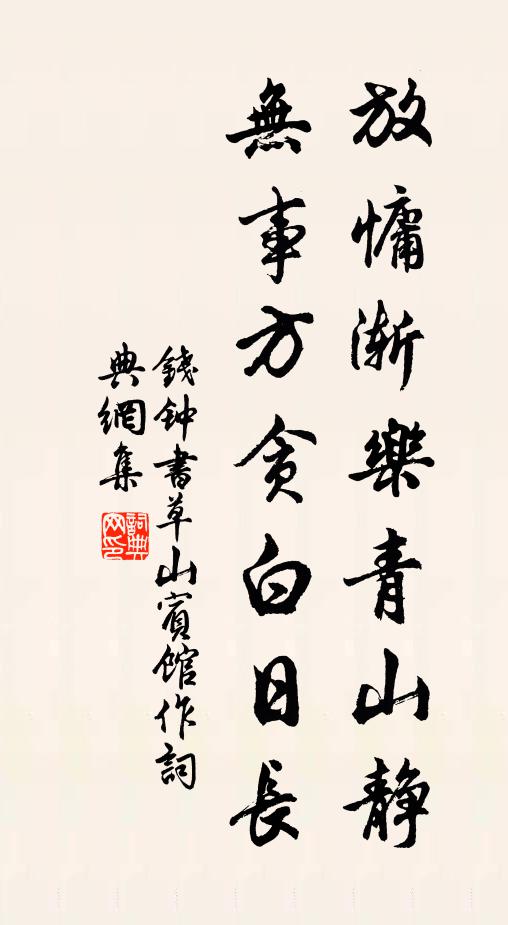 放慵渐樂青山静
無事方贪白日長
錢钟書草山賓館作詞
典網集
詞典
网印